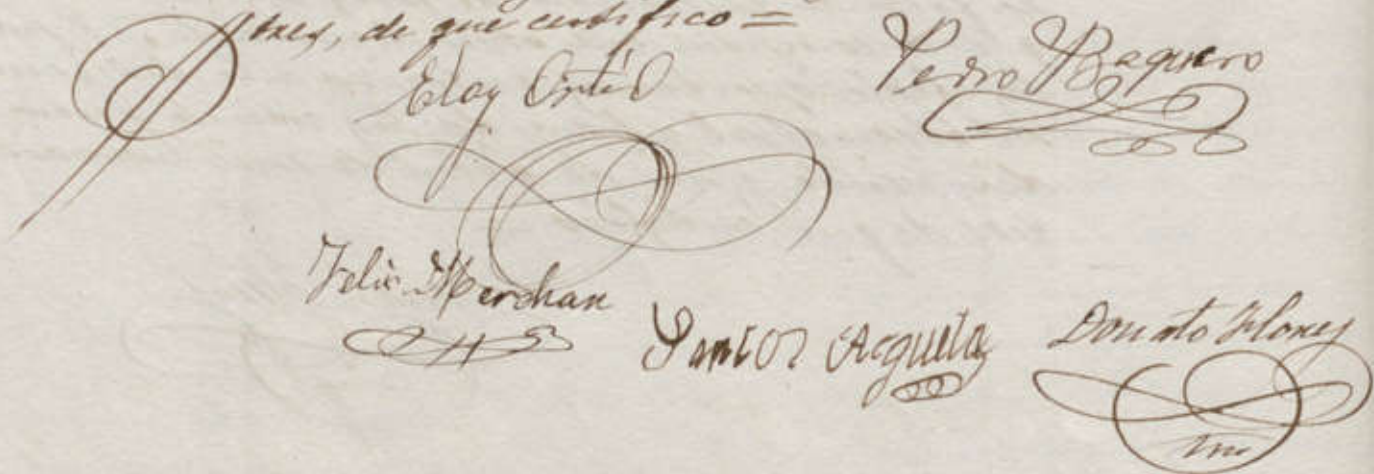 tres, de que certifico =
Eloy Ortiz
Pedro Baquero
Felix Merchan
Santos Argueta
Donato Flores